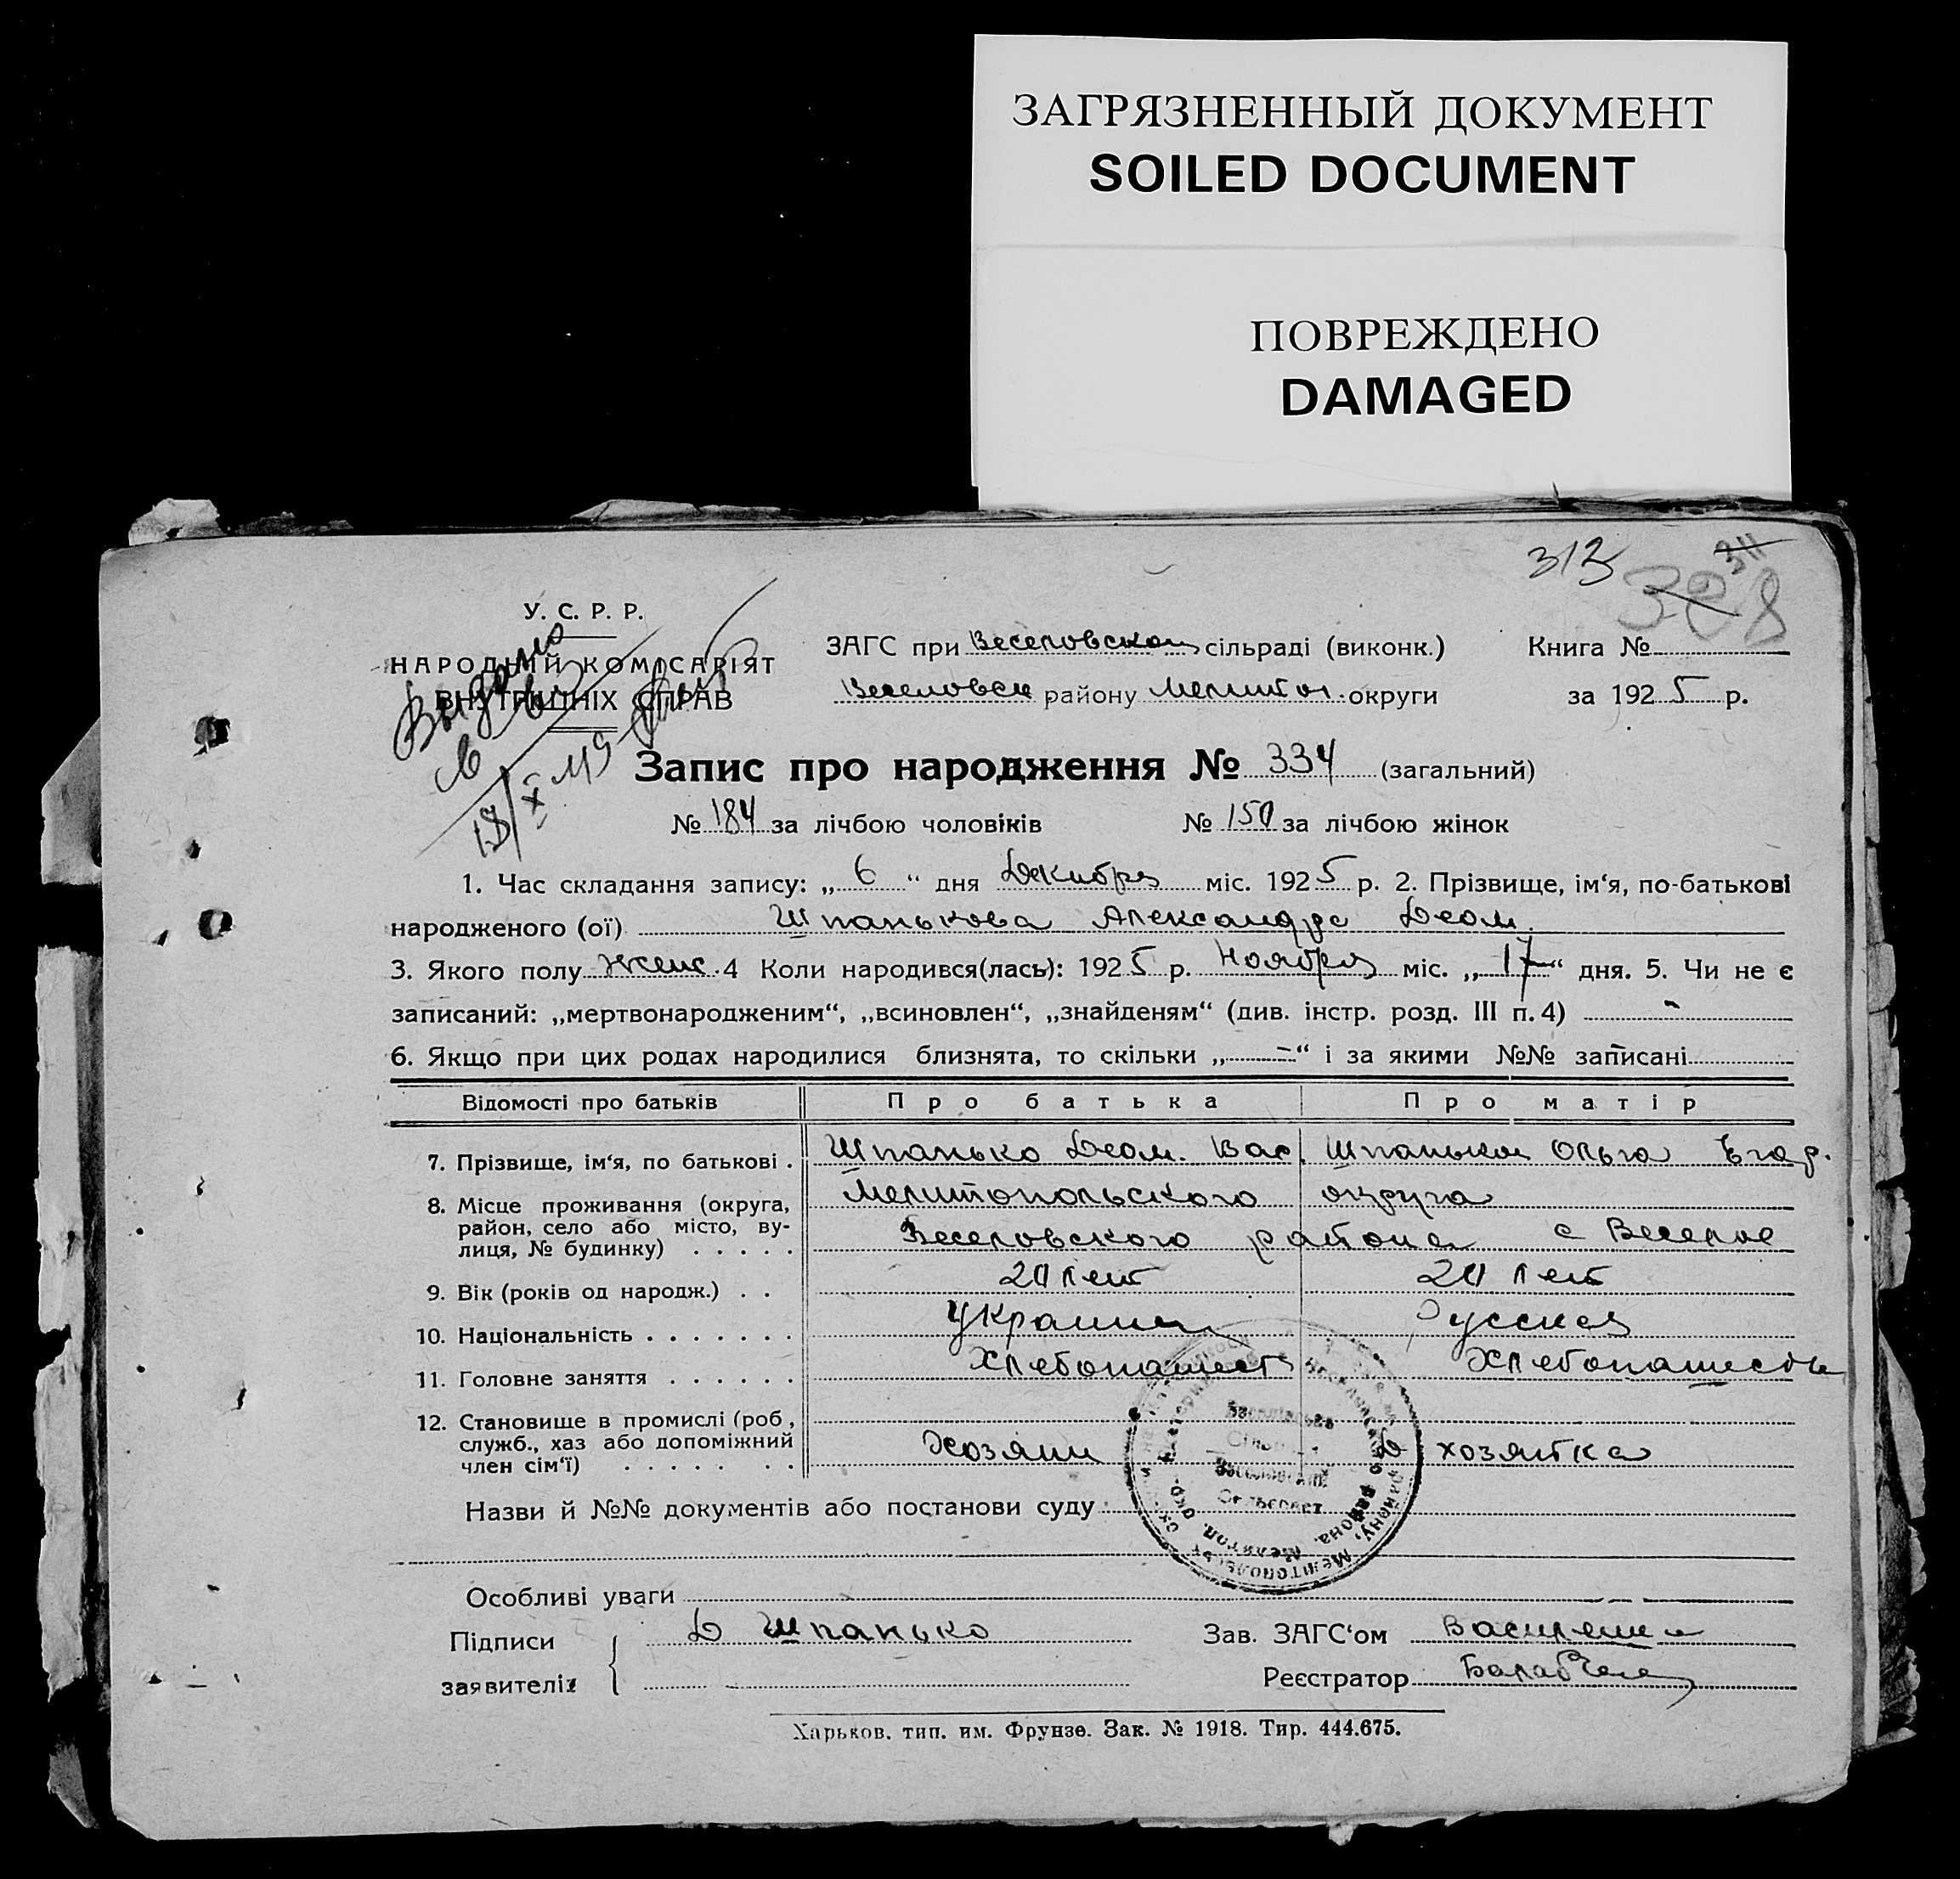 ЗАГРЯЗНЕННЫЙ ДОКУМЕНТ
SOILED DOCUMENT
ПОВРЕЖДЕНО
DAMAGED
313
311
328
У. С. Р. Р.
НАРОДНІЙ КОМІСАРІЯТ
ВНУТРІШНІХ СПРАВ
Выдано
18/X
ЗАГС при Веселовском сільраді (виконк.) Книга №
Веселовск району Мелитоп. округи за 1925 р.
Запис про народження № 334 (загальний)
№ 184 за лічбою чоловіків № 150 за лічбою жінок
1. Час складання запису: „ 6 “ дня Декабря міс. 1925 р. 2. Прізвище, ім‘я, по-батькові
народженого (ої) Шпанькова Александра Деом.
3. Якого полу женс. 4 Коли народився(лась): 1925 р. Ноября міс. „ 17 “ дня. 5. Чи не є
записаний: „мертвонародженим“, „всиновлен“, „знайденям“ (див. інстр. розд. III п. 4) -
6. Якщо при цих родах народилися близнята, то скільки „ – “ і за якими №№ записані
Відомості про батьків Про батька Про матір
7. Прізвище, ім‘я, по батькові . Шпанько Деом. Вас. Шпанько Ольга Егор.
8. Місце проживання (округа, Мелитопольского округа
район, село або місто, ву- Веселовского района с Веселое
лиця, № будинку) . . . . .
9. Вік (років од народж.) . . 20 лет 20 лет
10. Національність . . . . . . . Украинец Русская
11. Головне заняття . . . . . . Хлебопашест Хлебопашество
12. Становище в промислі (роб ,
служб., хаз або допоміжний Хозяин Д хозяйка
член сім‘ї) . . . . . . .
Назви й №№ документів або постанови суду
Особливі уваги
Підписи Д Шпанько Зав. ЗАГС‘ом
заявителів Реєстратор
Харьков. тип. им. Фрунзе. Зак. № 1918. Тир. 444.675.